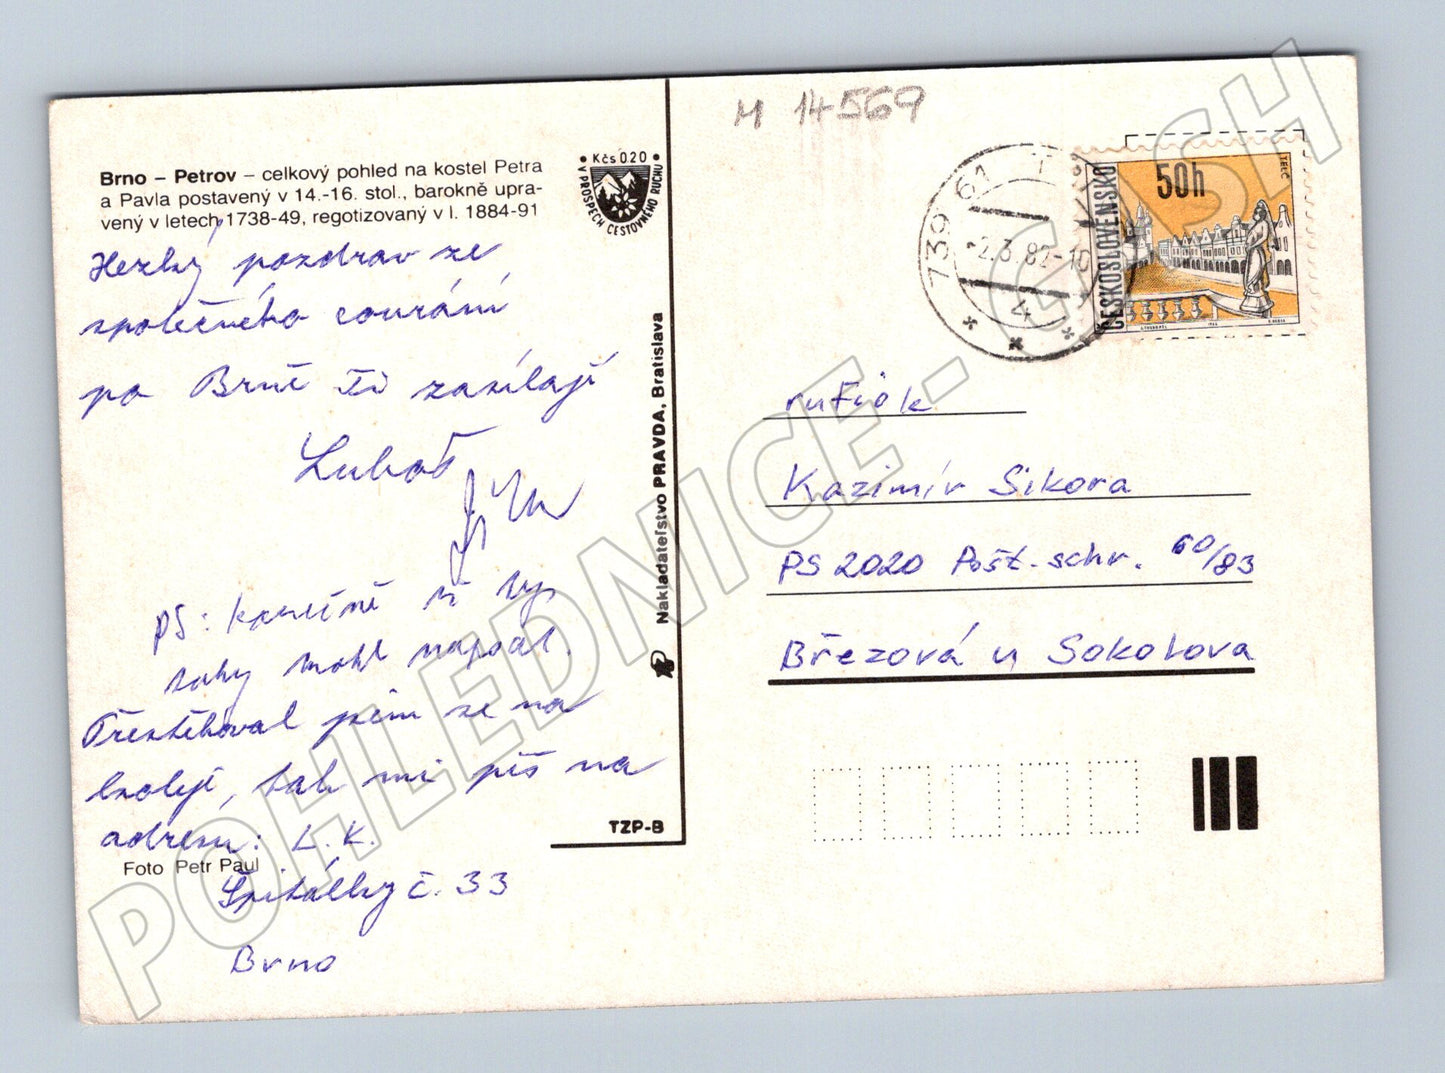 M 14569
Brno – Petrov – celkový pohled na kostel Petra
a Pavla postavený v 14.-16. stol., barokně upra-
vený v letech 1738-49, regotizovaný v l. 1884-91
• Kčs 0.20 •
V PROSPĚCH CESTOVNÉHO RUCHU
Hezký pozdrav ze
společného courání
po Brně Ti zasílají
Luboš
PS: Konečně
mohl napsat.
Přestěhoval jsem se na
koleje, tak mi piš na
adresu: L. K.
Foto Petr Paul
Špitálky č. 33
Brno
Nakladateľstvo PRAVDA, Bratislava
TZP-B
739 61 T
-2.3.82-10
4
ČESKOSLOVENSKO
50h
TELČ
ruFiok
Kazimír Sikora
PS 2020 Pošt. schr. 60/83
Březová u Sokolova
POHLEDNICE - CASH